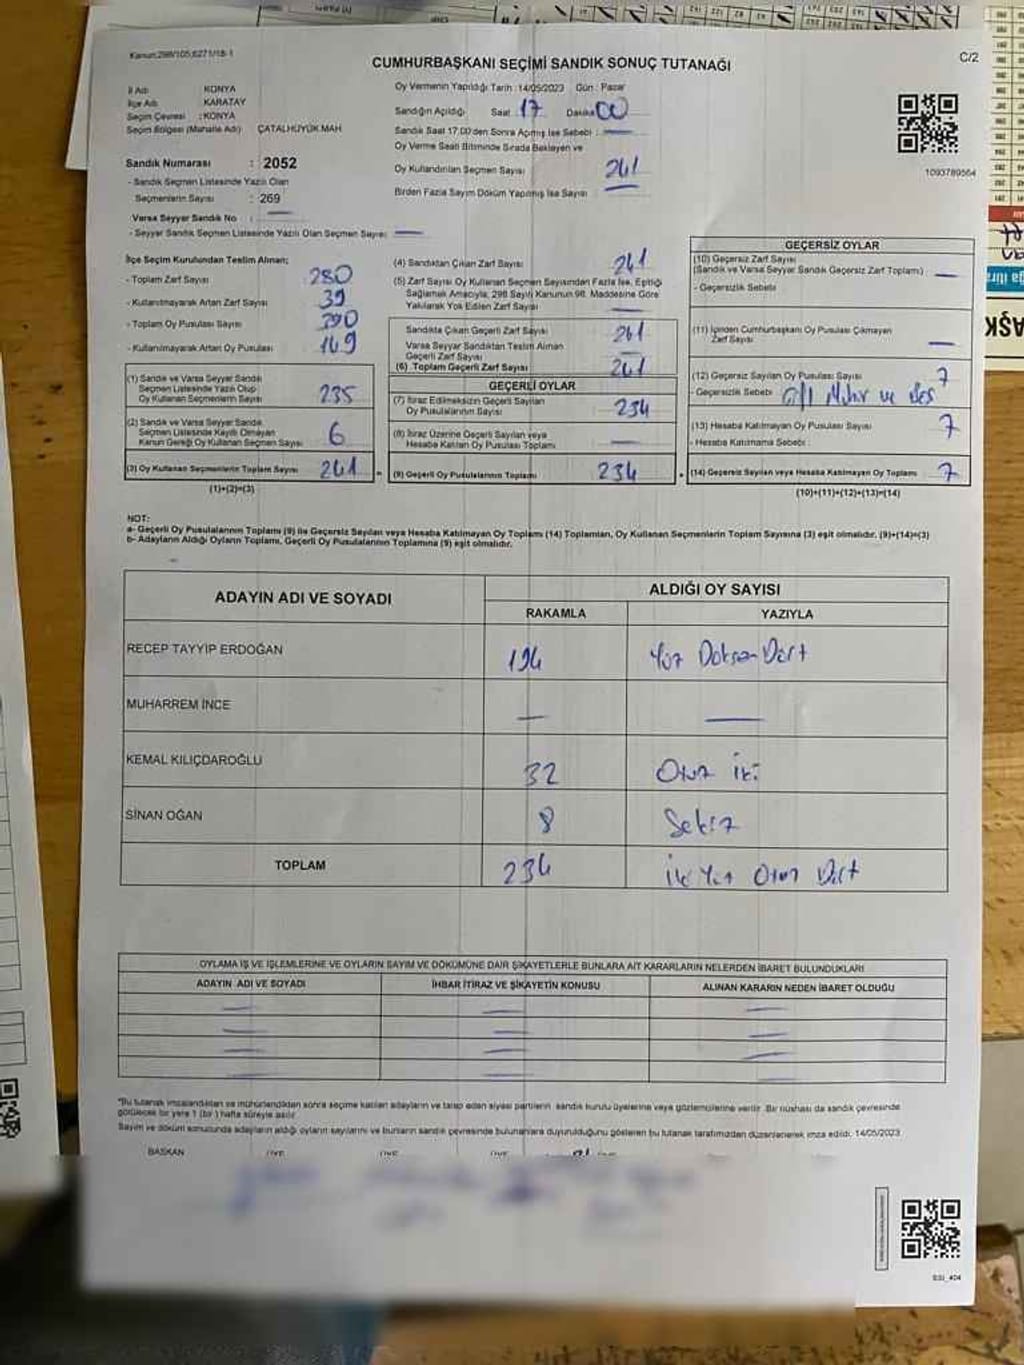 Kanun:298/105,6271/18-1
C/2
CUMHURBAŞKANI SEÇİMİ SANDIK SONUÇ TUTANAĞI
İl Adı KONYA
İlçe Adı KARATAY
Seçim Çevresi : KONYA
Seçim Bölgesi (Mahalle Adı) ÇATALHÜYÜK MAH.
Sandık Numarası : 2052
- Sandık Seçmen Listesinde Yazılı Olan
Seçmenlerin Sayısı : 269
Varsa Seyyar Sandık No : —
- Seyyar Sandık Seçmen Listesinde Yazılı Olan Seçmen Sayısı —
Oy Vermenin Yapıldığı Tarih : 14/05/2023 Gün : Pazar
Sandığın Açıldığı Saat 17 Dakika 00
Sandık Saat 17.00'den Sonra Açılmış İse Sebebi : —
Oy Verme Saati Bitiminde Sırada Bekleyen ve
Oy Kullandırılan Seçmen Sayısı 241
Birden Fazla Sayım Döküm Yapılmış İse Sayısı —
1093789564
İlçe Seçim Kurulundan Teslim Alınan;
- Toplam Zarf Sayısı 280
- Kullanılmayarak Artan Zarf Sayısı 39
- Toplam Oy Pusulası Sayısı 390
- Kullanılmayarak Artan Oy Pusulası 149
(1) Sandık ve Varsa Seyyar Sandık
Seçmen Listesinde Yazılı Olup
Oy Kullanan Seçmenlerin Sayısı 235
(2) Sandık ve Varsa Seyyar Sandık
Seçmen Listesinde Kayıtlı Olmayan
Kanun Gereği Oy Kullanan Seçmen Sayısı 6
(3) Oy Kullanan Seçmenlerin Toplam Sayısı 241
(1)+(2)=(3)
(4) Sandıktan Çıkan Zarf Sayısı 241
(5) Zarf Sayısı Oy Kullanan Seçmen Sayısından Fazla İse, Eşitliği
Sağlamak Amacıyla, 298 Sayılı Kanunun 98. Maddesine Göre
Yakılarak Yok Edilen Zarf Sayısı —
Sandıkta Çıkan Geçerli Zarf Sayısı 241
Varsa Seyyar Sandıktan Teslim Alınan
Geçerli Zarf Sayısı —
(6) Toplam Geçerli Zarf Sayısı 241
GEÇERLİ OYLAR
(7) İtiraz Edilmeksizin Geçerli Sayılan
Oy Pusulalarının Sayısı 234
(8) İtiraz Üzerine Geçerli Sayılan veya
Hesaba Katılan Oy Pusulası Toplamı —
(9) Geçerli Oy Pusulalarının Toplamı 234
GEÇERSİZ OYLAR
(10) Geçersiz Zarf Sayısı
(Sandık ve Varsa Seyyar Sandık Geçersiz Zarf Toplamı) —
- Geçersizlik Sebebi
(11) İçinden Cumhurbaşkanı Oy Pusulası Çıkmayan
Zarf Sayısı —
(12) Geçersiz Sayılan Oy Pusulası Sayısı 7
- Geçersizlik Sebebi Mühür ve
(13) Hesaba Katılmayan Oy Pusulası Sayısı 7
- Hesaba Katılmama Sebebi :
(14) Geçersiz Sayılan veya Hesaba Katılmayan Oy Toplamı 7
(10)+(11)+(12)+(13)=(14)
NOT:
a- Geçerli Oy Pusulalarının Toplamı (9) ile Geçersiz Sayılan veya Hesaba Katılmayan Oy Toplamı (14) Toplamları, Oy Kullanan Seçmenlerin Toplam Sayısına (3) eşit olmalıdır. (9)+(14)=(3)
b- Adayların Aldığı Oyların Toplamı, Geçerli Oy Pusulalarının Toplamına (9) eşit olmalıdır.
ADAYIN ADI VE SOYADI ALDIĞI OY SAYISI
RAKAMLA YAZIYLA
RECEP TAYYİP ERDOĞAN 194 Yüz Doksan Dört
MUHARREM İNCE — —
KEMAL KILIÇDAROĞLU 32 Otuz İki
SİNAN OĞAN 8 Sekiz
TOPLAM 234 İki Yüz Otuz Dört
OYLAMA İŞ VE İŞLEMLERİNE VE OYLARIN SAYIM VE DÖKÜMÜNE DAİR ŞİKAYETLERLE BUNLARA AİT KARARLARIN NELERDEN İBARET BULUNDUKLARI
ADAYIN ADI VE SOYADI İHBAR İTİRAZ VE ŞİKAYETİN KONUSU ALINAN KARARIN NEDEN İBARET OLDUĞU
*Bu tutanak imzalandıktan ve mühürlendikten sonra seçime katılan adayların ve talep eden siyasi partilerin sandık kurulu üyelerine veya gözlemcilerine verilir. Bir nüshası da sandık çevresinde
görülecek bir yere 1 (bir) hafta süreyle asılır.
Sayım ve döküm sonucunda adayların aldığı oyların sayılarını ve bunların sandık çevresinde bulunanlara duyurulduğunu gösteren bu tutanak tarafımızdan düzenlenerek imza edildi. 14/05/2023
BAŞKAN ÜYE ÜYE ÜYE